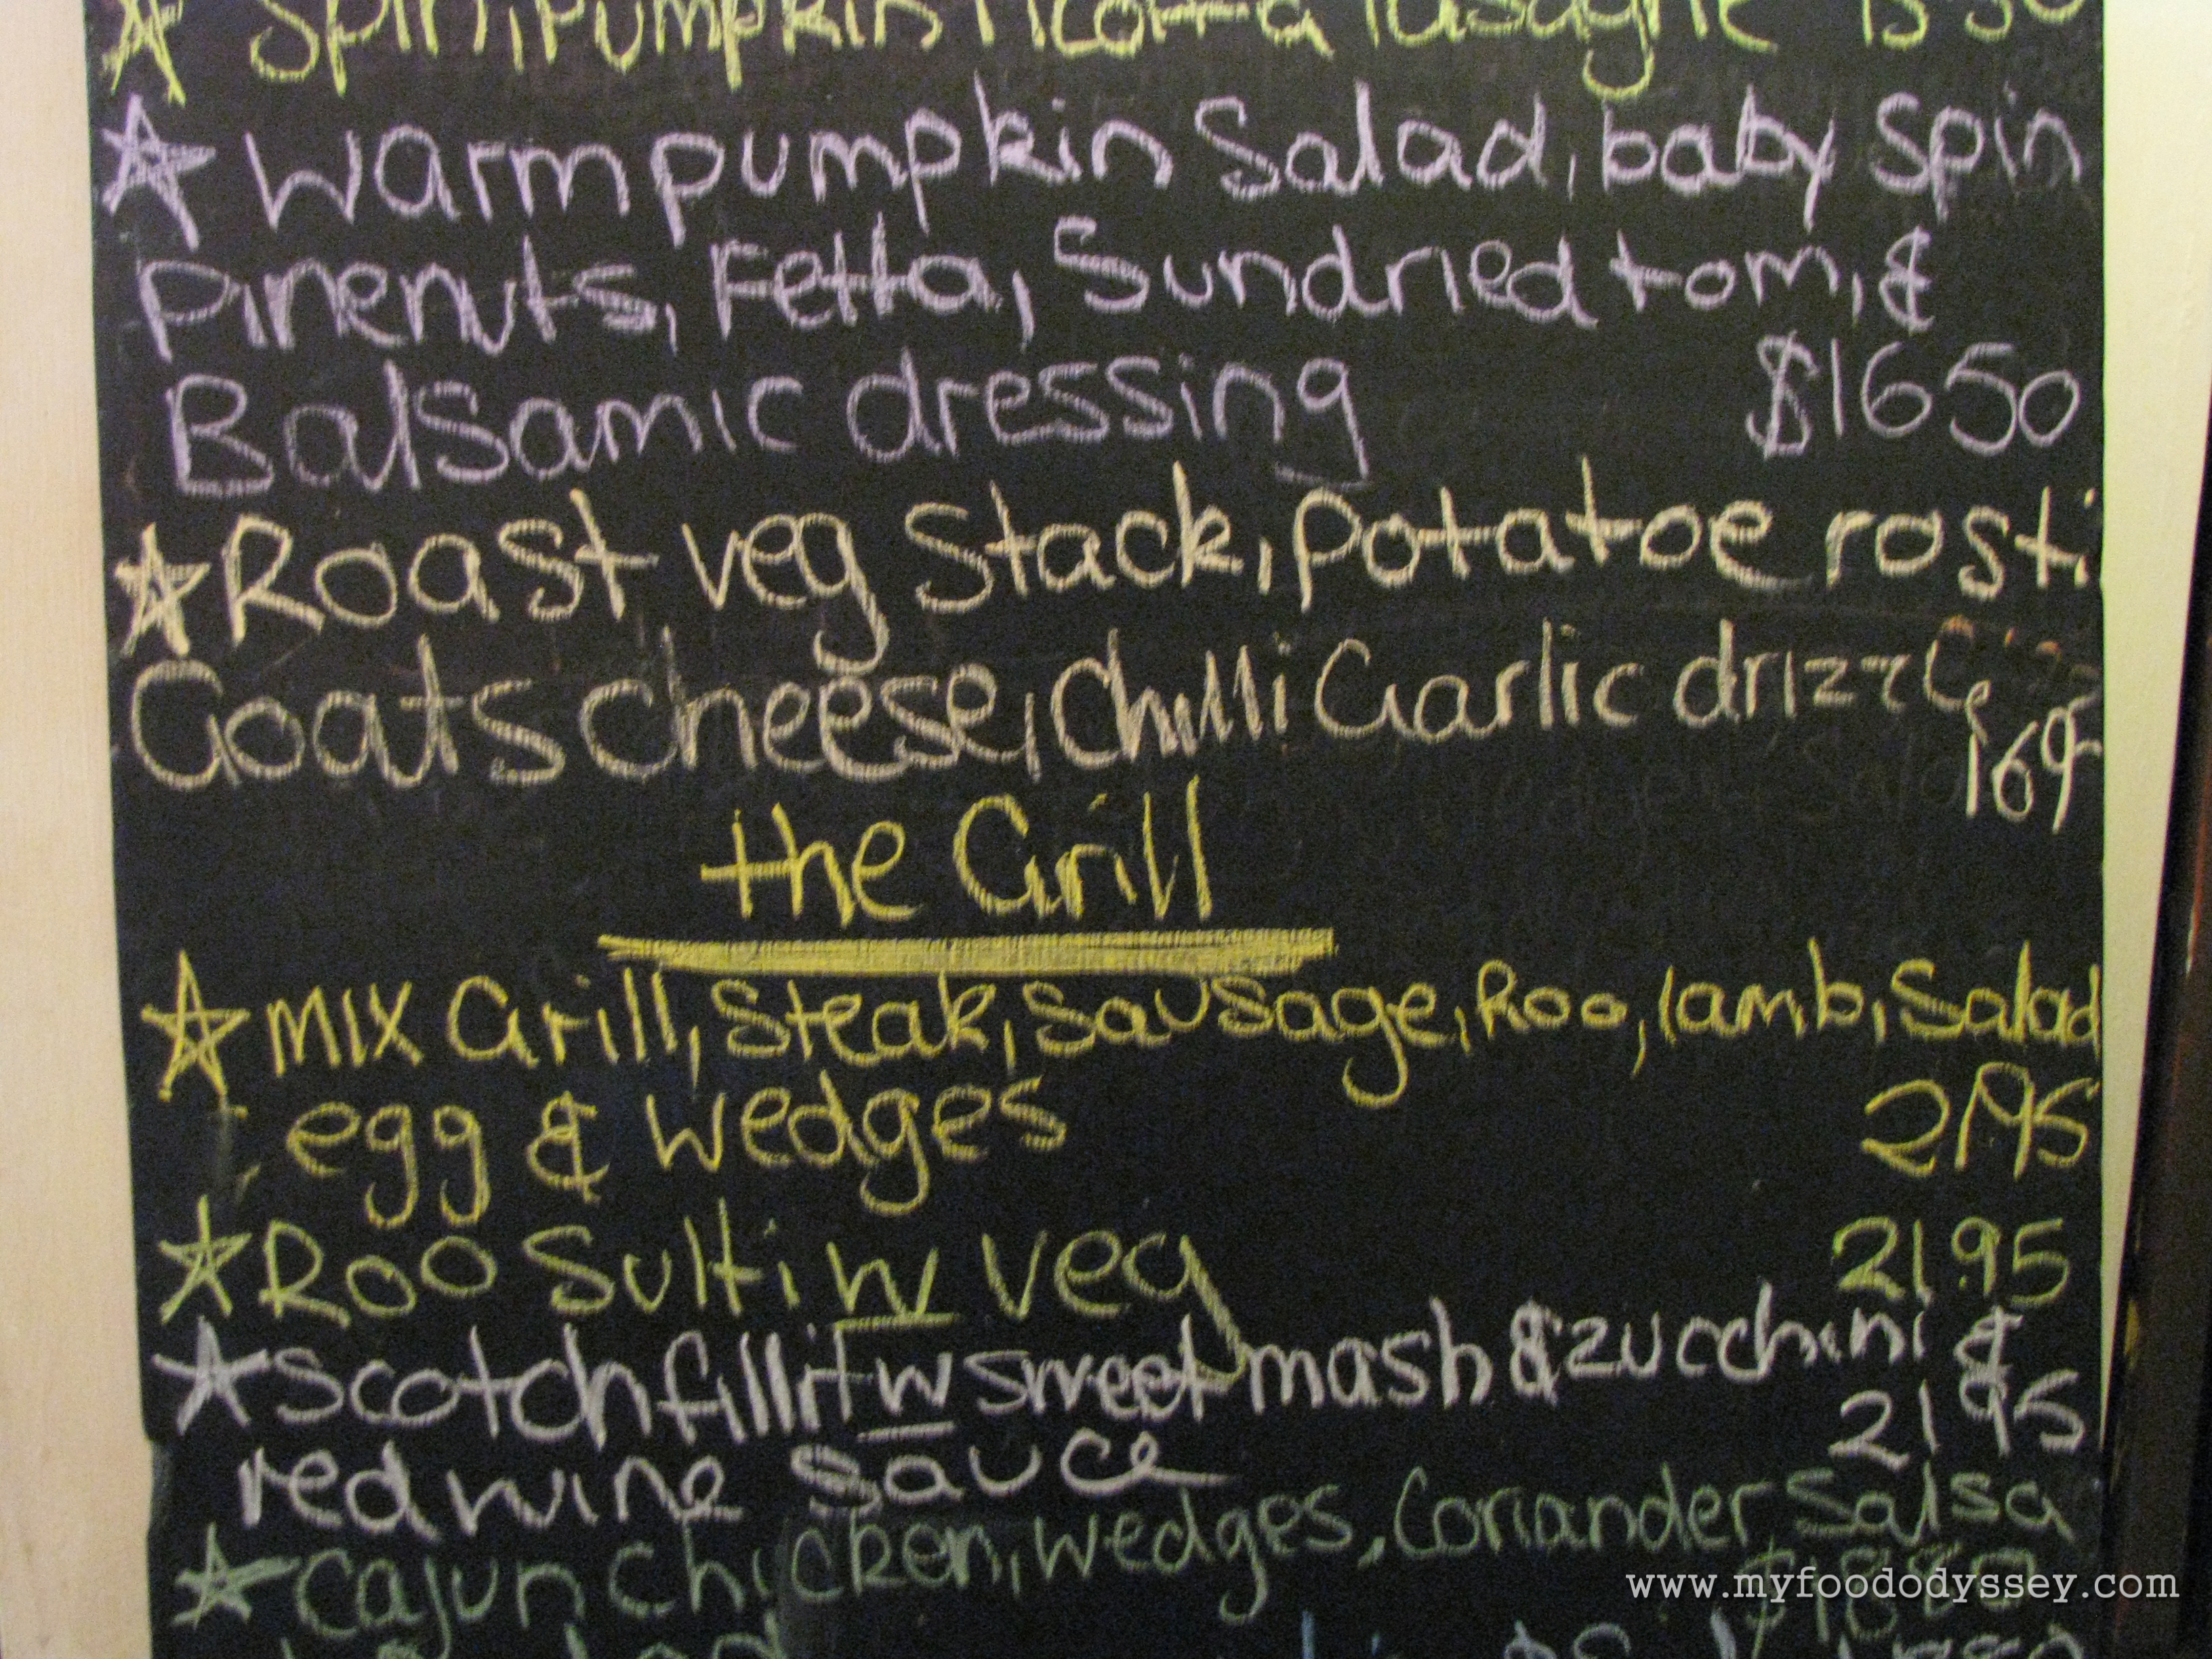 ☆ Spin, Pumpkin ricotta lasagne 15 50
☆ Warm pumpkin Salad, baby Spin
Pinenuts, Fetta, Sundried tom, &
Balsamic dressing $16 50
☆ Roast veg Stack, Potatoe rosti
Goats cheese, Chilli Garlic drizzle
1695
the Grill
☆ MIX Grill, Steak, Sausage, Roo, lamb, Salad
egg & wedges 2195
☆ Roo Sulti w veg 21.95
☆ Scotch fillit w sweet mash & zucchini &
red wine sauce 21 95
☆ Cajun Chicken, wedges, Coriander Salsa
www.myfoododyssey.com